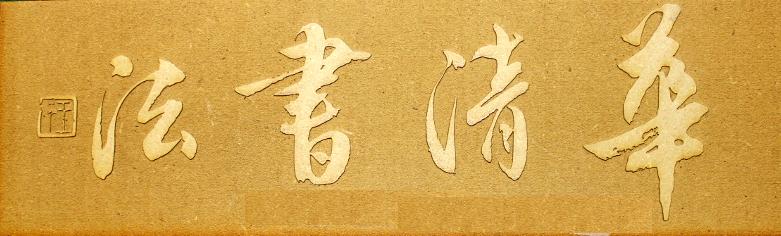 華清書法